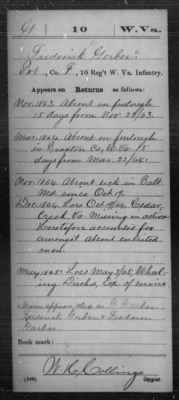 G | 10 | W. Va.
Frederick Gerber
Pvt., Co. F, 10 Reg't W. Va. Infantry.
Appears on Returns as follows:
Nov. 1863. Absent on furlough
15 days from Nov. 22/63.
Mar. 1864. Absent on furlough
in Braxton Co, W. Va. 15
days from Mar. 22/64.
Nov. 1864 Absent sick in Balt
Md. since Oct. 19.
Dec. 1864. Loss Oct. 19/64. Cedar
Creek Va. Missing in action
Heretofore accounted for
amongst absent enlisted
men.
May 1865 Loss May 3/65 Wheel-
ing, Disch'd, Exp. of service
Name appears also as
Frederick Gerber & Frederic
Garber.
Book mark:
W. H. Collings
Copyist.